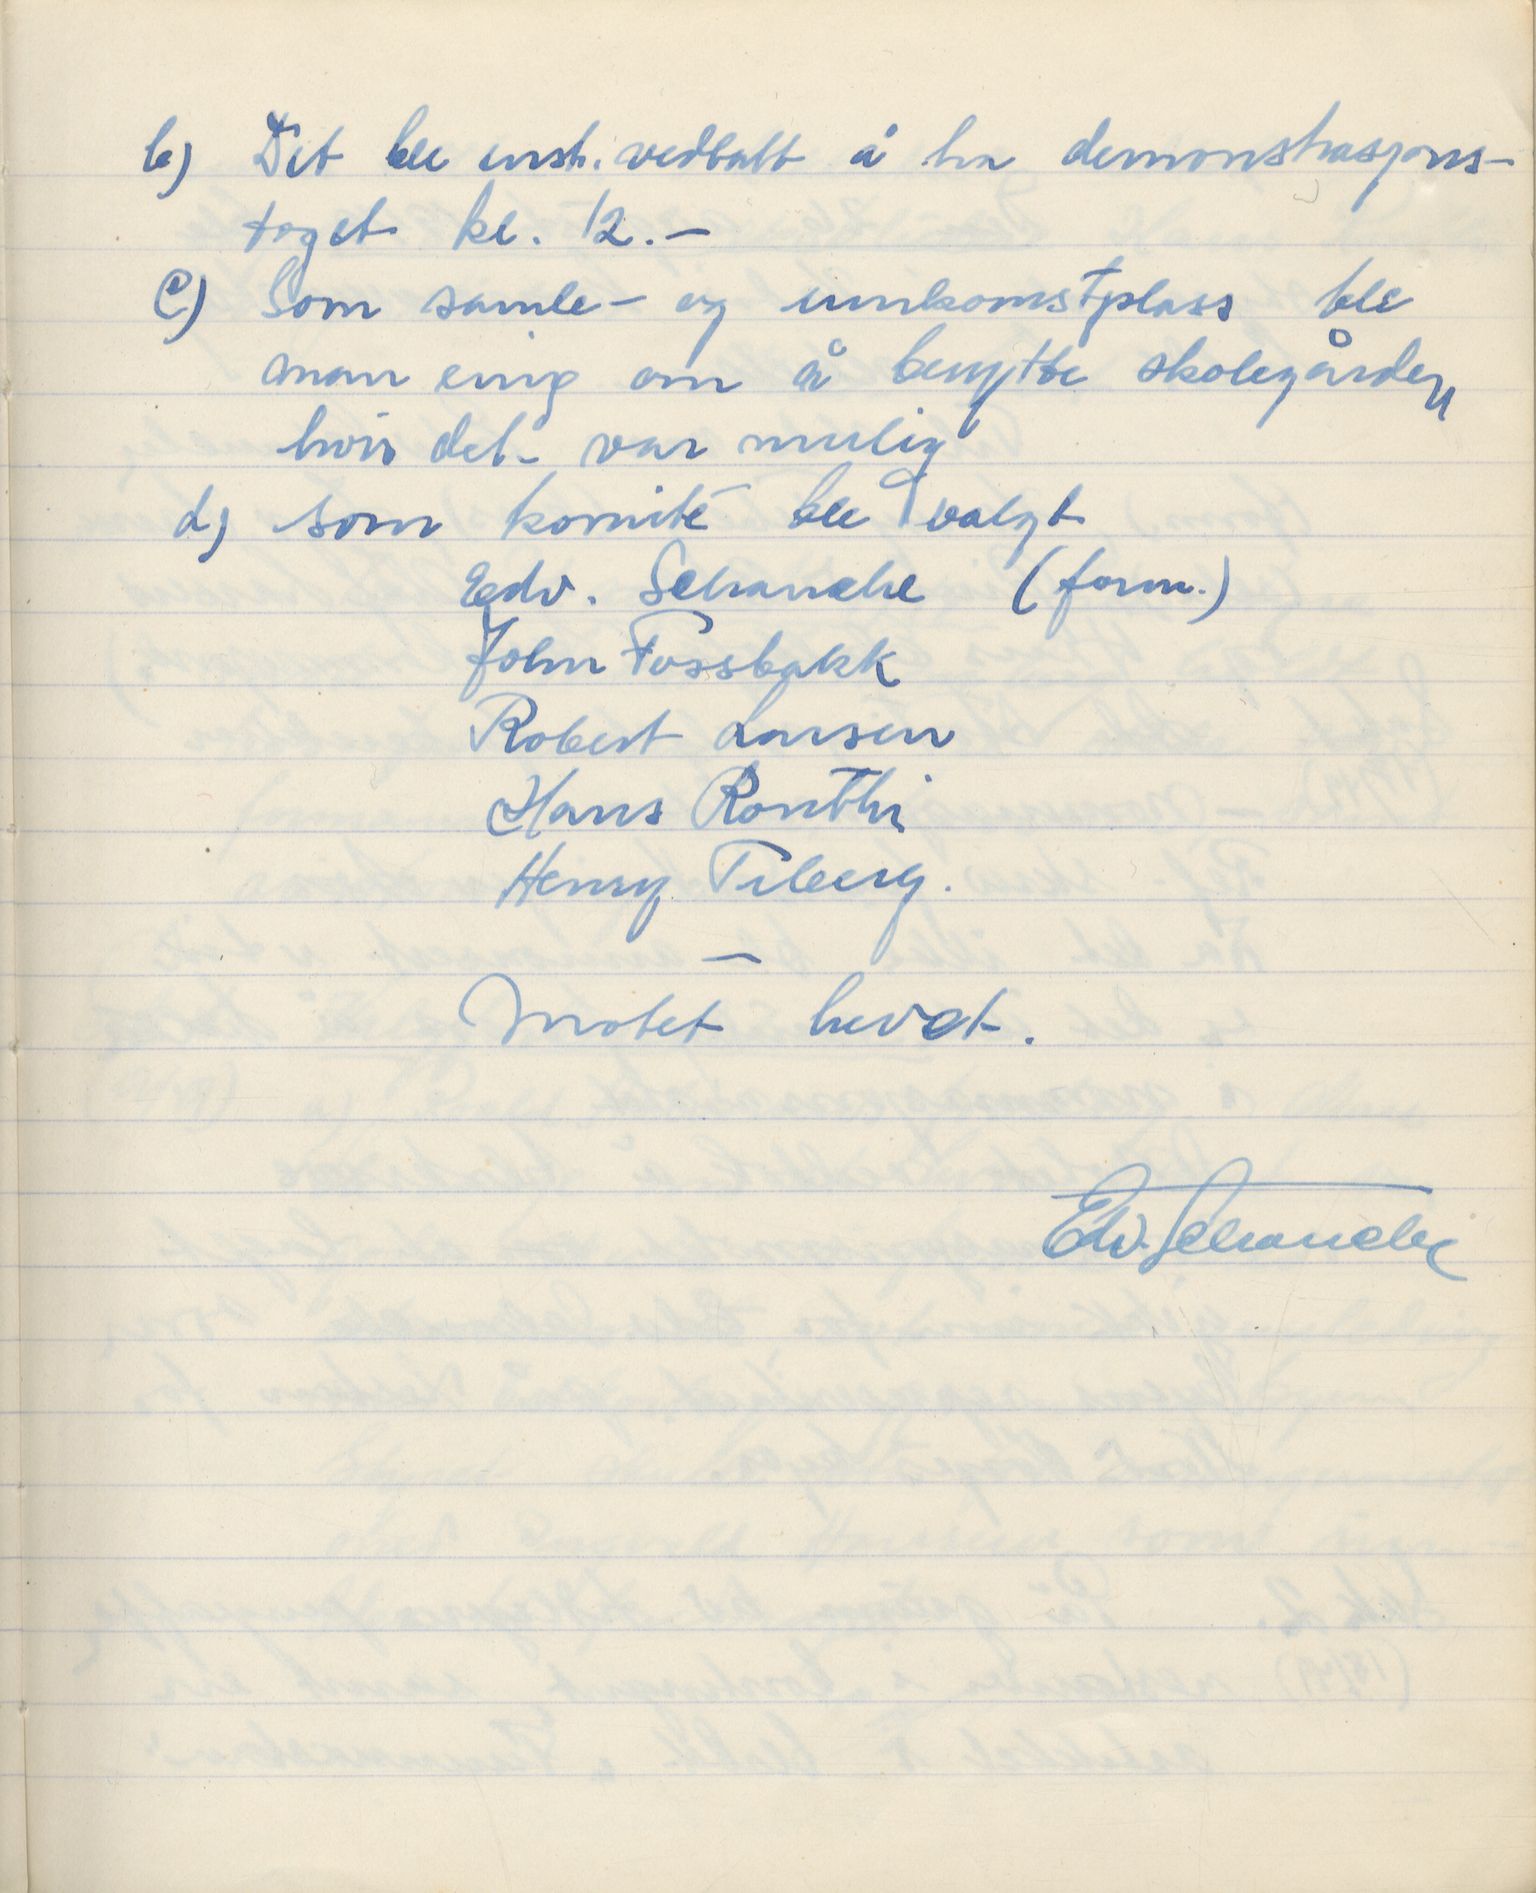 b) Det ble enst. vedtatt å ha demonstrasjons-
toget kl. 12.-
c) Som samle- og unnkomstplass ble
man enig om å benytte skolegården
hvis det var mulig
d) som komité ble valgt
Edv. Schanche (form.)
John Fossbakk
Robert Larsen
Hans Ronthi
Henry Tiberg.
Møtet hevet.
Edv. Schanche